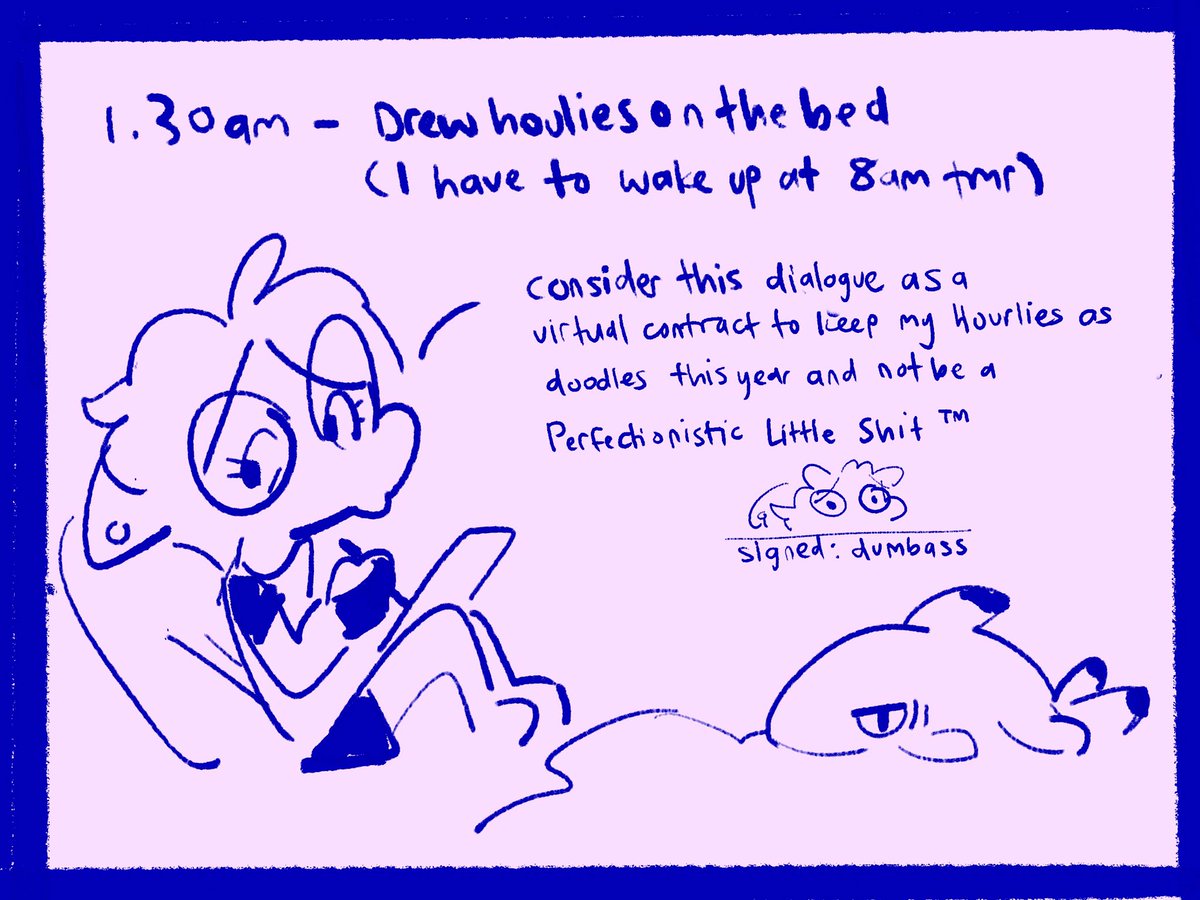 1.30am - Drew houlies on the bed
(I have to wake up at 8am tmr)
consider this dialogue as a
virtual contract to keep my Hourlies as
doodles this year and not be a
Perfectionistic Little Shit ™
signed: dumbass